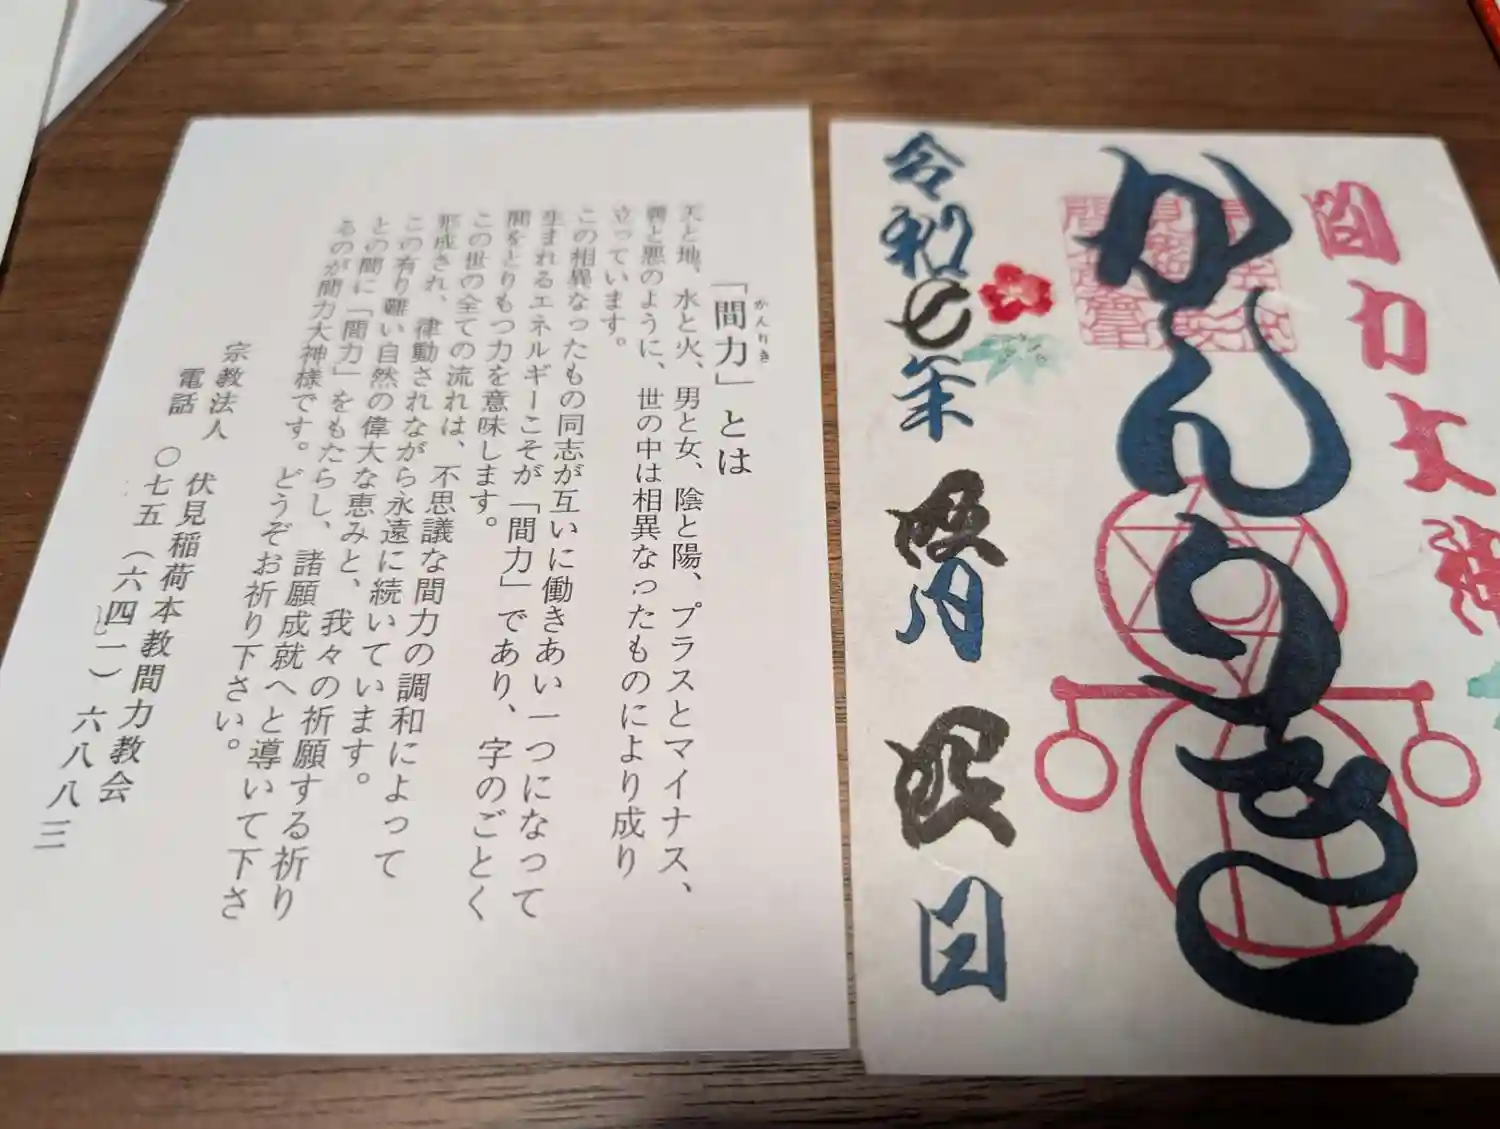 「間力」とは
かんりき
天と地、水と火、男と女、陰と陽、プラスとマイナス、
善と悪のように、世の中は相異なったものにより成り
立っています。
この相異なったもの同志が互いに働きあい一つになって
生まれるエネルギーこそが「間力」であり、字のごとく
間をとりもつ力を意味します。
この世の全ての流れは、不思議な間力の調和によって
形成され、律動されながら永遠に続いています。
この有り難い自然の偉大な恵みと、我々の祈願する祈り
との間に「間力」をもたらし、諸願成就へと導いて下さ
るのが間力大神様です。どうぞお祈り下さい。
宗教法人 伏見稲荷本教間力教会
電話 〇七五（六四一）六八八三
間力大神
かんりき
令和七年
月
日